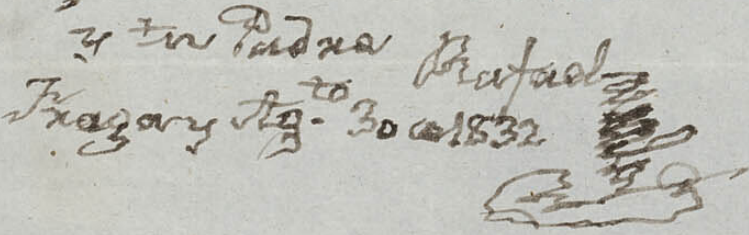 y tu Padre Rafael
Fragay Ag.to 30 a 1832